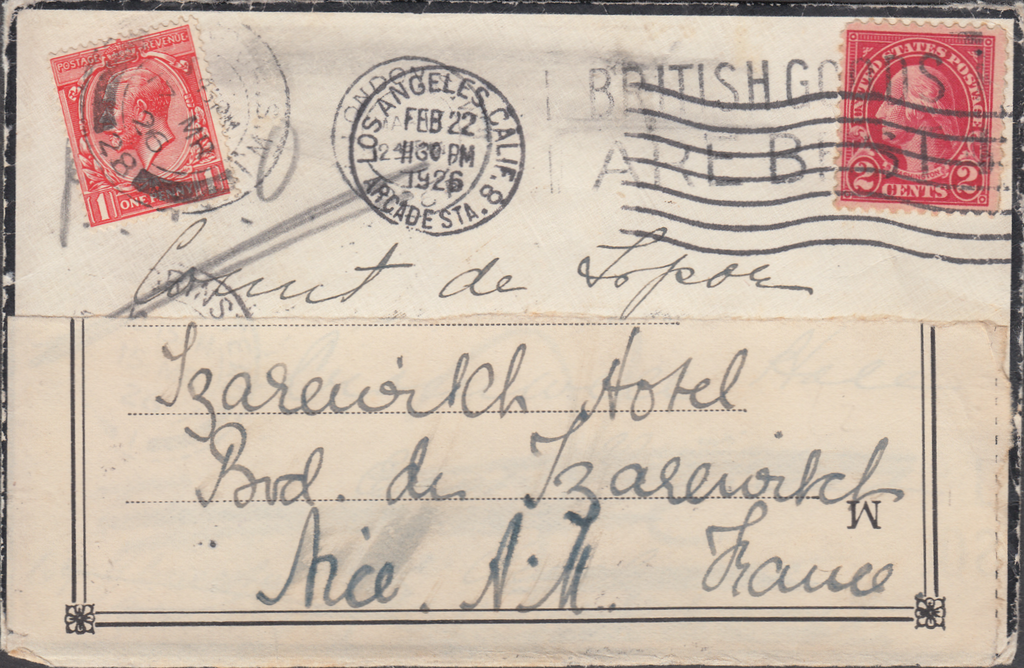 POSTAGE REVENUE
1 ONE 1
LONDON
LOS ANGELES, CALIF. 8
FEB 22
1130 PM
1926
ARCADE STA.
BRITISH GOODS
ARE BEST
UNITED STATES POSTAGE
2 CENTS 2
Count de
Tzarewitch Hotel
Bvd. du Tzarewitch
M
Nice. A.M. France